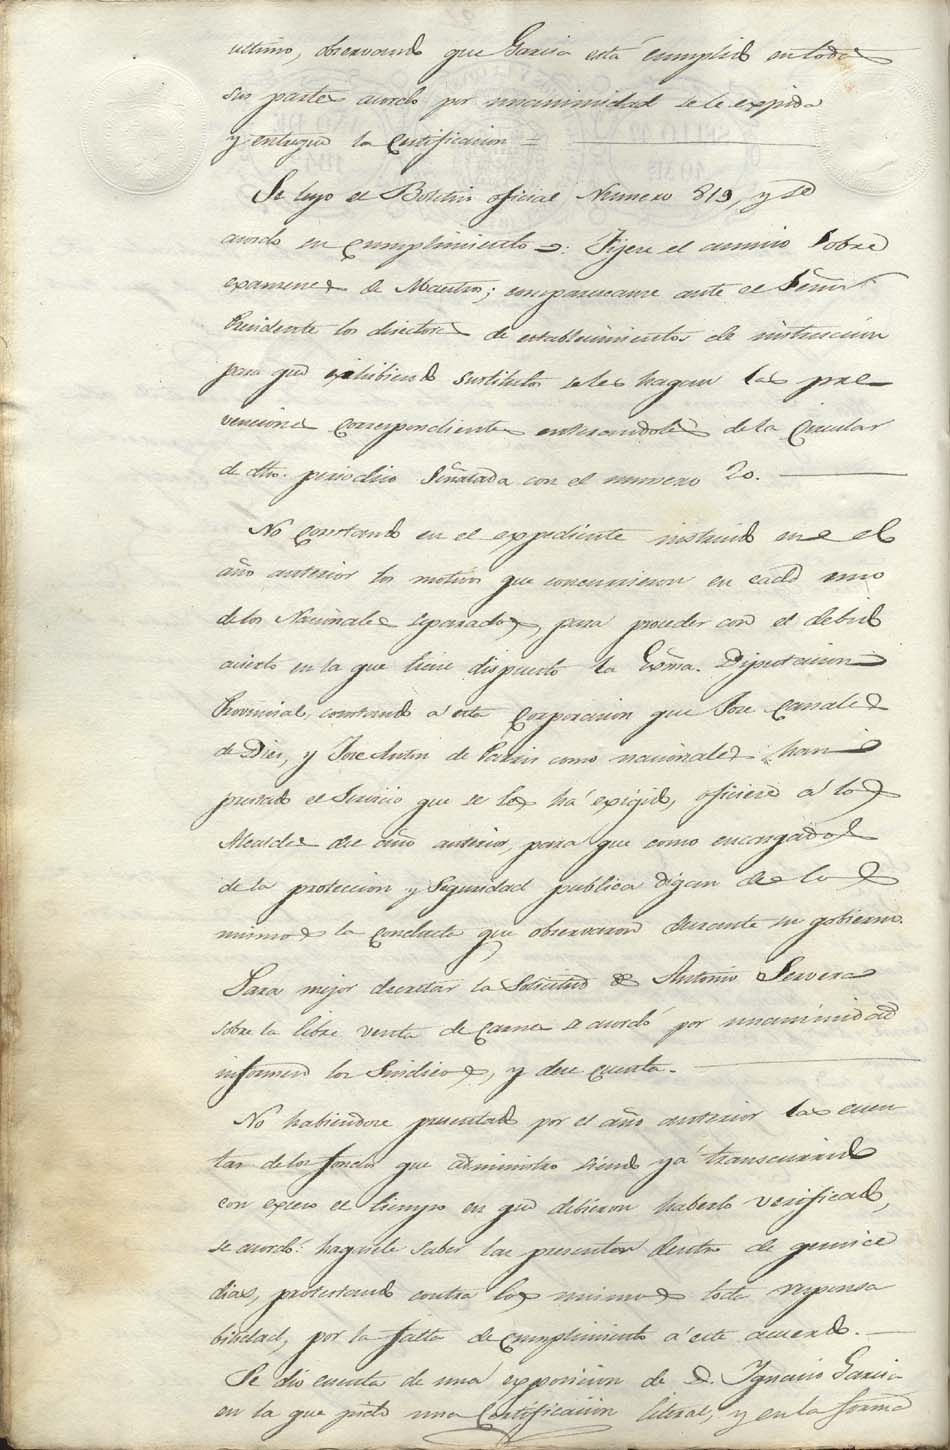 ultimo, observando que Garcia está cumplido en todas
sus partes acordo por unanimidad se le expida
y entregue la Certificacion =
Se leyo el Boletin oficial Numero 819, y se
acordo su cumplimiento =: Fijese el anuncio sobre
examenes de Maestros; comparezcan ante el Señor
Presidente los directores de establecimientos de instruccion
para que exhibiendo sus titulos se les hagan las pre-
venciones correspondientes enterandoles de la Circular
de dho. periodico Señalada con el numero 20.
No constando en el expediente instruido en el
año anterior los motivos que concurrieron en cada uno
de los Nacionales separados, para proceder con el debido
acierto en la que tiene dispuesto la Exma. Diputacion
Provincial, constando á esta Corporacion que Jose Canales
de Dies, y Jose Anton de como nacionales han
prestado el Servicio que se les há exigido, oficiese á los
Alcaldes del año anterior, para que como encargados
de la proteccion y Seguridad publica digan de los
mismos la conducta que observaron durante su gobierno.
Para mejor decretar la Solicitud de Antonio Servera
sobre la libre venta de carnes se acordó por unanimidad
informen los Sindicos, y dese cuenta.
No habiendose presentado por el año anterior las cuen
tas de los fondos que administro siendo yá transcurrido
con exceso el tiempo en que debieron haberlo verificado,
se acordó: hagasele saber las presenten dentro de quince
dias, protestando contra los mismos toda responsa
bilidad, por la falta de cumplimiento á este acuerdo.
Se dió cuenta de una exposicion de D. Ignacio Garcia
en la que pide una Certificacion literal, y en la forma